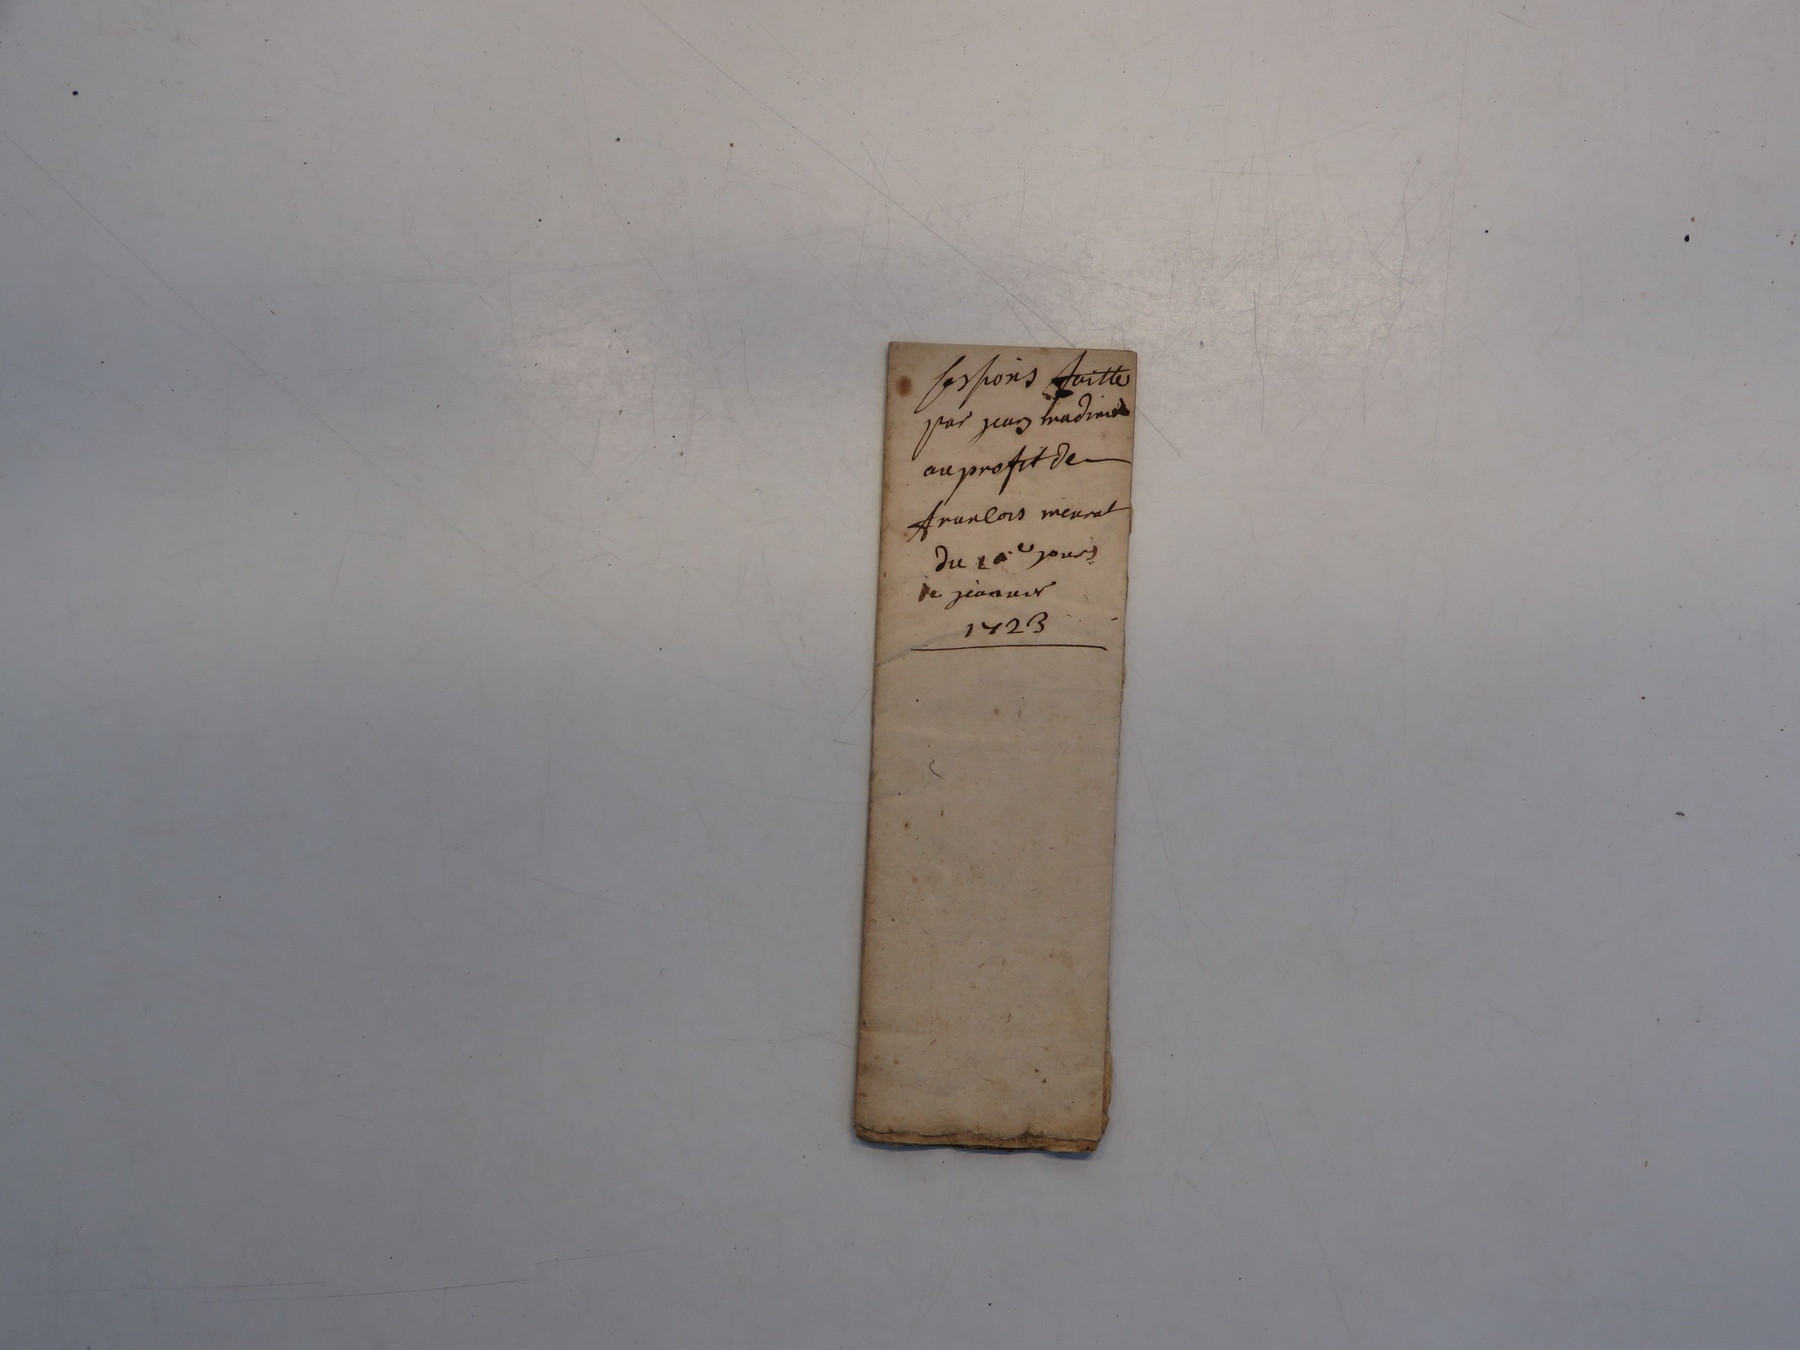 sessions faitte
par jean madime
au profit de
francois meurat
du 10e jours
de jeanuier
1723